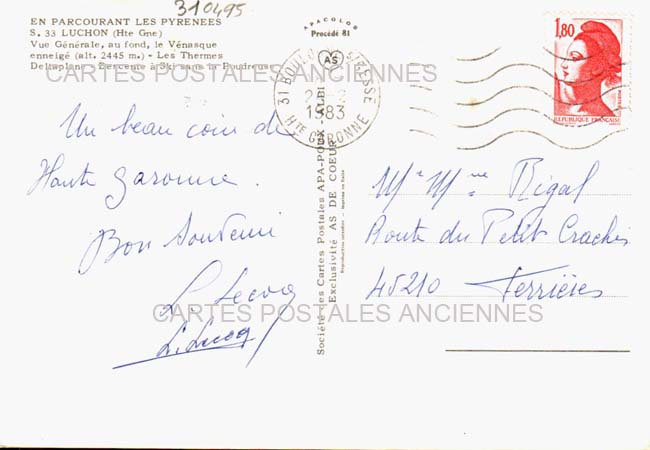 310495
EN PARCOURANT LES PYRENEES
S. 33 LUCHON (Hte Gne)
Vue Générale, au fond, le Vénasque
enneigé (alt. 2445 m.) - Les Thermes
Deltaplane - Descente à Ski sans la Poudreuse
APACOLOR
Procédé 81
AS
31 BOULOGNE S/GESSE
1983
HTE GARONNE
1,80
REPUBLIQUE FRANÇAISE
CARTES POSTALES ANCIENNES
Un beau coin de
Haute Garonne.
Bon Souvenir
L. Lecoq
L. Lecoq
Société des Cartes Postales APA-POUX - ALBI
Exclusivité AS DE COEUR
Reproduction interdite - Imprimé en Italie
Mr Mme Rigal
Route du Petit Crachis
45210 Ferrières
CARTES POSTALES ANCIENNES